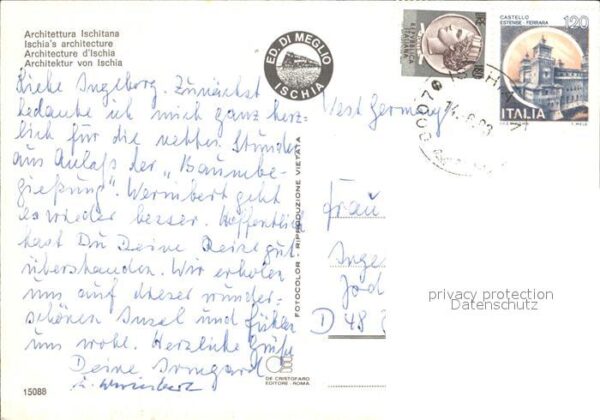 Architettura Ischitana
Ischia's architecture
Architecture d'Ischia
Architektur von Ischia
ED. DI MEGLIO
ISCHIA
CASTELLO
ESTENSE - FERRARA
120
ITALIA
Liebe Ingeborg. Zunächst
bedanke ich mich ganz herz-
lich für die netten Stunden
aus Anlaß der "Baumbe-
gießung". Wernibert geht
es wieder besser. Hoffentlich
hast Du Deine Reise gut
überstanden. Wir erholen
uns auf dieser wunder-
schönen Insel und fühlen
uns wohl. Herzliche Grüße
Deine Irmgard
u. Wernibert
West Germany
Frau
Inge
D 48
privacy protection
Datenschutz
FOTOCOLOR - RIPRODUZIONE VIETATA
DE CRISTOFARO
EDITORE - ROMA
15088